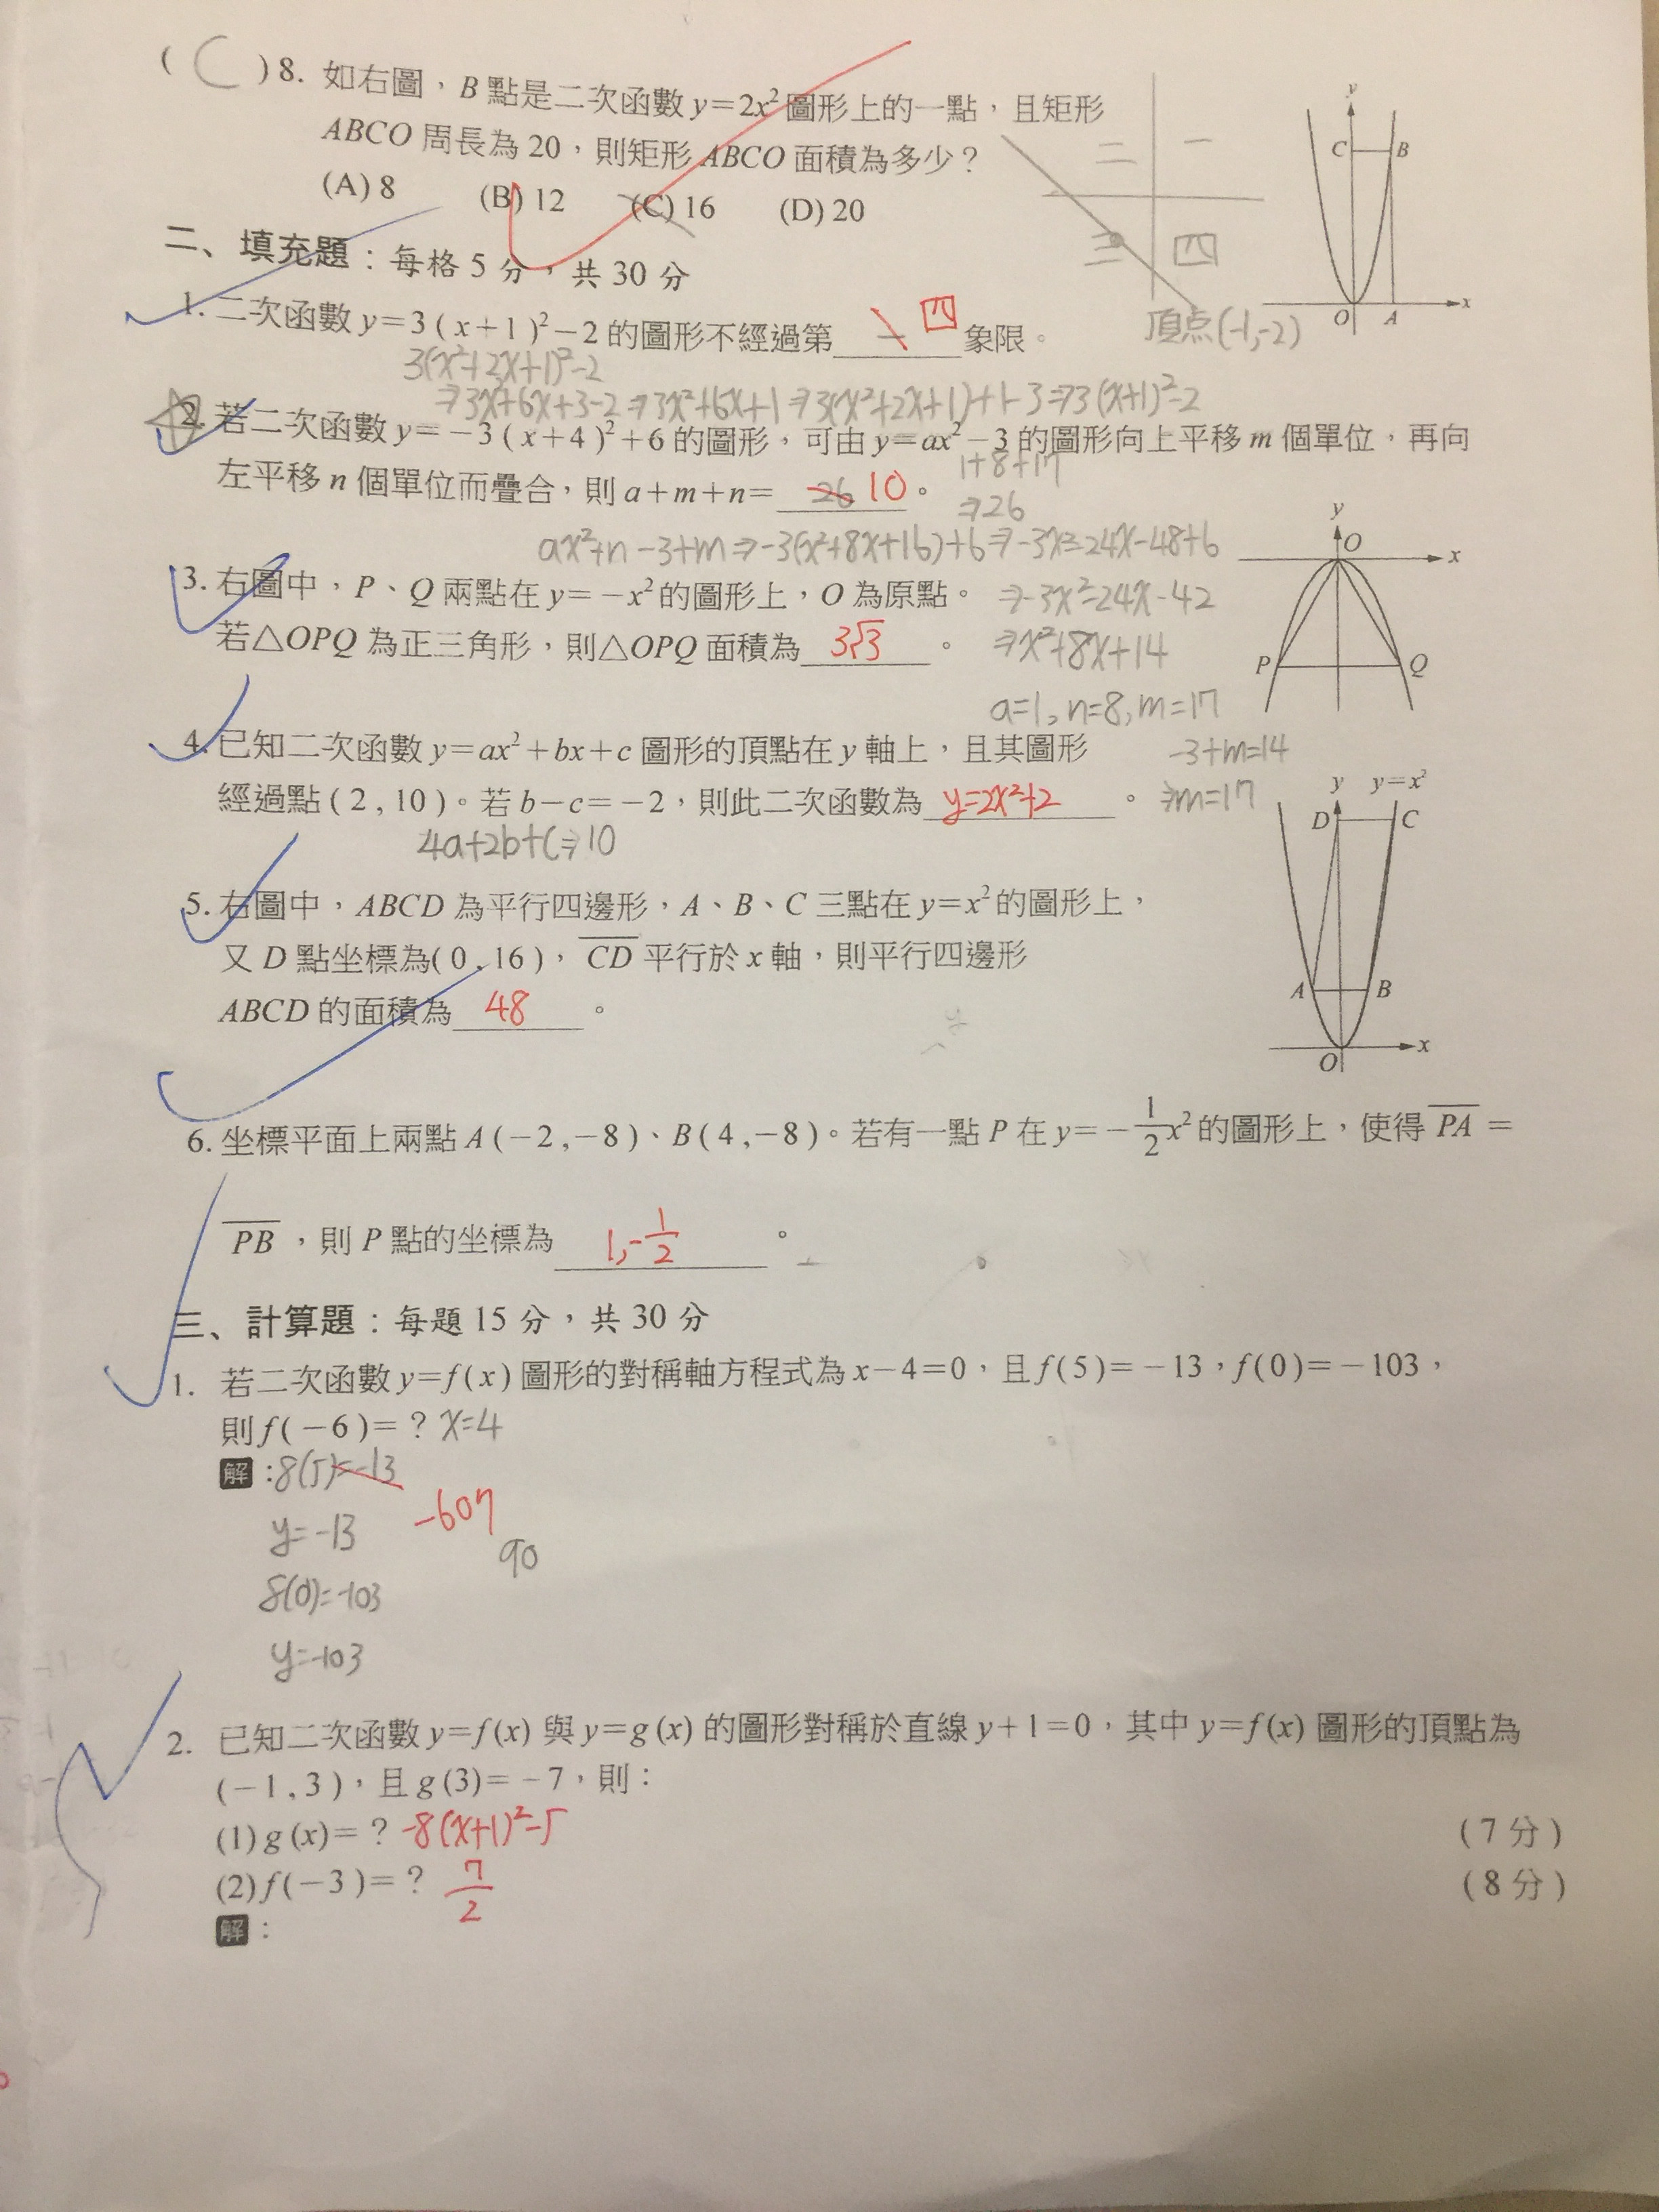 ( C ) 8. 如右圖，B 點是二次函數 y=2x² 圖形上的一點，且矩形
ABCO 周長為 20，則矩形 ABCO 面積為多少？
(A) 8 (B) 12 (C) 16 (D) 20
二 一
三 四
y
C B
O A x
二、填充題：每格 5 分，共 30 分
1. 二次函數 y=3(x+1)²−2 的圖形不經過第 一 四 象限。
頂点(-1,-2)
3(x²+2x+1)²-2
⇒3x²+6x+3-2⇒3x²+6x+1⇒3(x²+2x+1)+1-3⇒3(x+1)²-2
2. 若二次函數 y=−3(x+4)²+6 的圖形，可由 y=ax²−3 的圖形向上平移 m 個單位，再向
左平移 n 個單位而疊合，則 a+m+n= 26 10 。
1+8+17
⇒26
ax²+n-3+m⇒-3(x²+8x+16)+6⇒-3x²-24x-48+6
⇒-3x²-24x-42
⇒x²+8x+14
a=1,n=8,m=17
-3+m=14
⇒m=17
y
O x
P Q
3. 右圖中，P、Q 兩點在 y=−x² 的圖形上，O 為原點。
若△OPQ 為正三角形，則△OPQ 面積為 3√3 。
4. 已知二次函數 y=ax²+bx+c 圖形的頂點在 y 軸上，且其圖形
經過點(2,10)。若 b−c=−2，則此二次函數為 y=2x²+2 。
4a+2b+c⇒10
y y=x²
D C
A B
O x
5. 右圖中，ABCD 為平行四邊形，A、B、C 三點在 y=x² 的圖形上，
又 D 點坐標為(0,16)，CD 平行於 x 軸，則平行四邊形
ABCD 的面積為 48 。
6. 坐標平面上兩點 A(−2,−8)、B(4,−8)。若有一點 P 在 y=−1/2x² 的圖形上，使得 PA =
PB ，則 P 點的坐標為 1,-1/2 。
三、計算題：每題 15 分，共 30 分
1. 若二次函數 y=f(x) 圖形的對稱軸方程式為 x−4=0，且 f(5)=−13，f(0)=−103，
則 f(−6)=？ x=4
解：8(5)=-13
y=-13 -607
90
8(0)=-103
y=-103
2. 已知二次函數 y=f(x) 與 y=g(x) 的圖形對稱於直線 y+1=0，其中 y=f(x) 圖形的頂點為
(−1,3)，且 g(3)=−7，則：
(1) g(x)=？ -8(x+1)²-5 (7 分)
(2) f(−3)=？ 7/2 (8 分)
解：